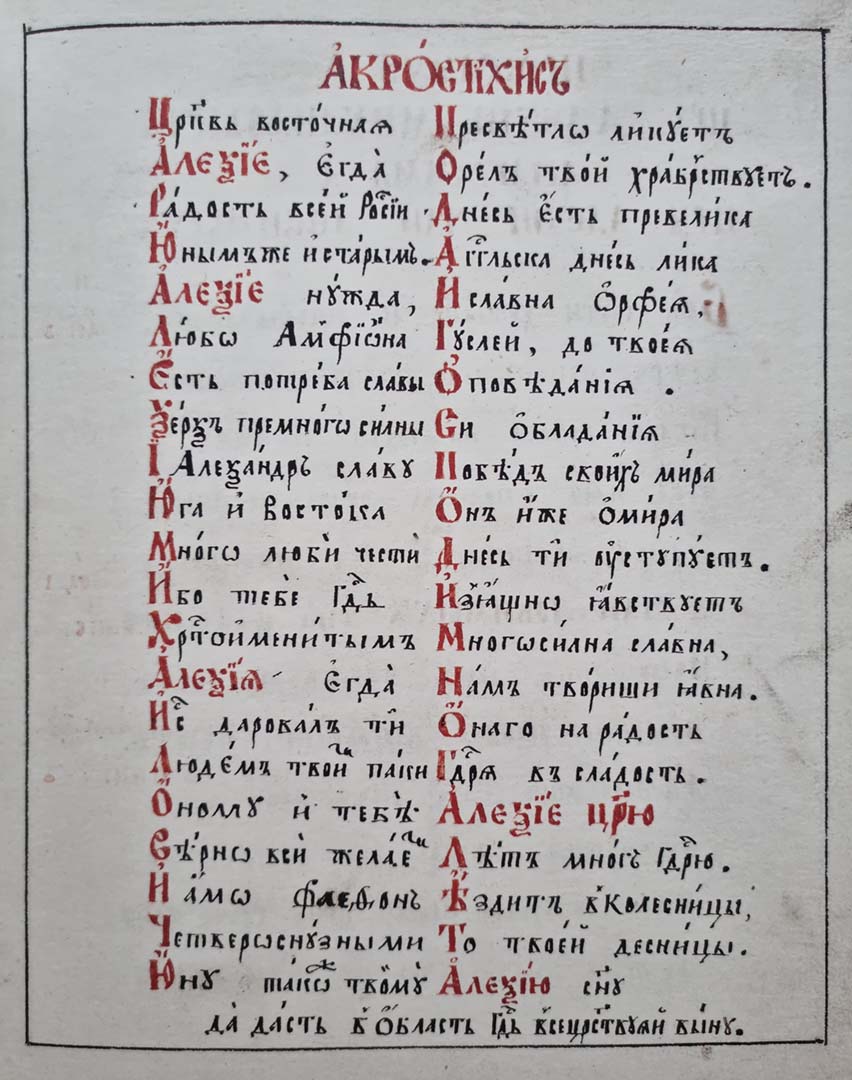 А҆КРО́СТІХИ҆СЪ
Цр҃ковь восто́чная Пресвѣ́тлѡ лику́етъ
А҆ЛЕѮІ́Е, Є҆гда̀ Ѻ҆ре́лъ твой хра́брствуетъ.
Ра́дость все́й Росі́и Дне́сь є҆́сть превели́ка
Ю҆́нымъже и҆ ста́рымъ. А҆́гг҃льска дне́сь ли́ка
А҆ЛЕѮІ́Е ну́жда, И҆ сла́вна Ѻ҆рфе́я,
Лю́бѡ Амфїѡ́на Гу́слей, до твоея̀
Є҆́сть потре́ба сла́вы Ѻ҆повѣ́данія.
Ѯе́рѯъ премно́гѡ си́лны Си ѻ҆блада́нїя
І҆ Алеѯа́ндръ сла́ву Побѣ́дъ свои́хъ ми́ра
Ю҆́га и҆ Восто́ка Ѻ҆́нъ и҆́же ѻ҆ми́ра
Мно́гѡ любѝ че́сти Дне́сь ти̑ ѹ҆ступу́етъ.
И҆́бо тебѐ Гд҃ь И҆зѧ́щнѡ ꙗ҆́вствуетъ
Хрⷭ҇тоимени́тымъ Многѡси́лна сла́вна,
А҆ЛЕѮІ́Я Є҆гда̀ На́мъ твори́ши ꙗ҆́вна.
І҆и҃с дарова́лъ ти̑ Ѻ҆́наго на ра́дость
Лю́демъ твои̑ па́ки Гдⷭ҇рѧ въ сла́дость.
Ѻ҆́ному и҆ тебѣ̀ А҆ЛЕѮІ́Е цр҃ю
Вѣ́рнѡ всѝ жела́е Лѣ́тъ мно́гъ Гдⷭ҇рю.
И҆ ꙗ҆́мѡ фае́ѳонъ Ѣ҆́здитъ в̾ колесни́цы,
Четверѡсну́зными То твое́й десни́цы.
Ю҆́ну та́кѡ твоему̀ А҆ЛЕѮІ́Ю сн҃у
да̀ да́сть в̾ ѻ҆́бласть Гд҃ь всецрⷭ҇твуяй вы́ну.